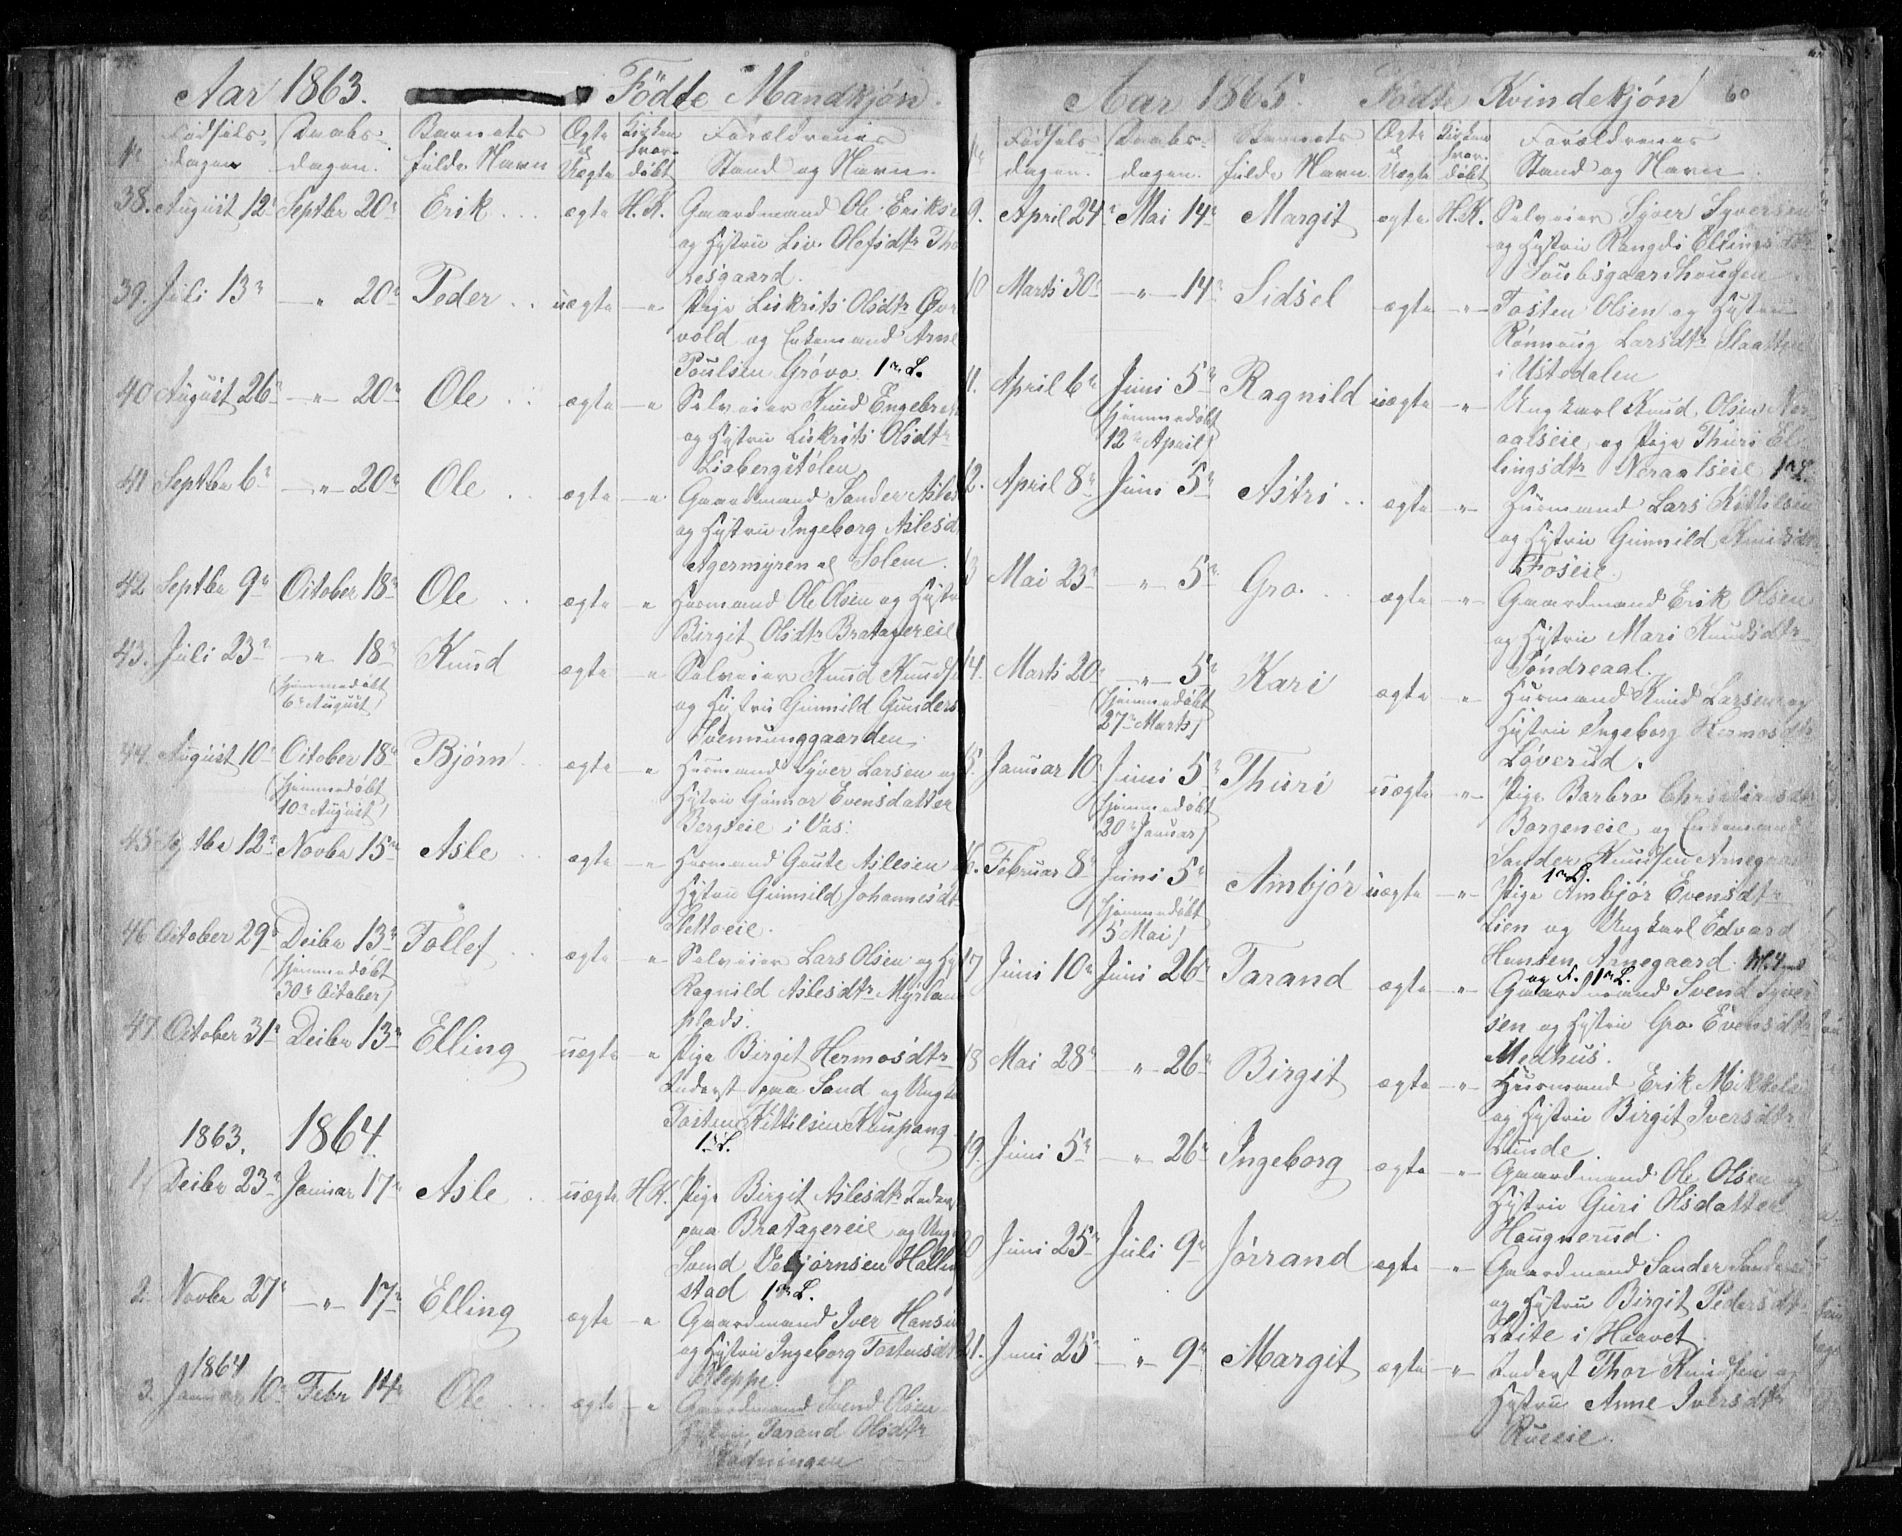 Aar 1863. Fødte Mandkjøn.
No Fødsels- dagen Daabs- dagen. Barnets fulde Navn Ægte el. Uægte Kirken hvor døbt Forældrenes Stand og Navn.
38. August 12te Septbr 20de Erik . . . ægte H.K. Gaardmand Ole Eriks
og Hustru Liv Olefsdtr Tho
resgaard.
39. Juli 13de —"— 20de Peder . . uægte —"— Pige Liskrits Olsdtr Øv
vold og Enkemand Arne
Poulsen Grøvo. 1ste L.
40 August 26de —"— 20de Ole . . ægte —"— Selveier Knud Engebre
og Hustru Liskrits Olsdtr
Liabergstølen
41 Septbr 6te —"— 20de Ole . . ægte —"— Gaardmand Sander Asles
og Hustru Ingeborg Aslesd
Agermyren al Solem.
42 Septbr 9de October 18de Ole . . ægte —"— Husmand Ole Olsen og Hustr
Birgit Olsdtr Bratagereie
43. Juli 23de —"— 18de Knud ægte —"— Selveier Knud Knuds
(hjemmedøbt
6te August)
og Hustru Gunnild Gunders
Svennunggaarden.
44. August 10de October 18de Bjørn . . ægte —"— Husmand Syver Larsen og
(hjemmedøbt
10de August)
Hustru Gunnor Evensdatter
Bergseie i Vas.
45 Septbr 12te Novbr 15de Asle . . ægte —"— Husmand Goute Aslesen
Hustru Gunnild Johannesdt
Slettoeie.
46 October 29de Decbr 13de Tollef . . ægte —"— Selveier Lars Olsen og Hu
(hjemmedøbt
30de October)
Ragnild Aslesdtr Myrlan
plads.
47. October 31te Decbr 13de Elling uægte —"— Pige Birgit Hermosdtr
Inderst paa Sand og Ungk
Tosten Kittilsen Kaupang.
1ste L.
1863. 1864.
1. Decbr 23de Januar 17de Asle . . uægte H.K. Pige Birgit Aslesdtr Inders
paa Bratagereie og Ungk
Svend Vebjørnsen Hallin
stad 1ste L.
2. Novbr 27de —"— 17de Elling ægte —"— Gaardmand Iver Hansen
og Hustru Ingeborg Tostensdt
Kleppe.
1864
3. Januar 10de Febr 14de Ole . . . ægte —"— Gaardmand Svend Olsen
Hustru Tarand Olsdtr
Aar 1865. Fødte Kvindekjøn 60
No Fødsels- dagen. Daabs- dagen. Barnets fulde Navn. Ægte el. Uægte Kirken hvor døbt Forældrenes Stand og Navn.
9. April 24de Mai 14de Margit ægte H.K. Selveier Syver Syversen
og Hustru Rangdi Ellingsdtr
10 Marts 30te —"— 14de Sidsel ægte —"— Tosten Olsen og Hustru
Rønnoug Larsdtr Slaatten
i Ustedalen
11. April 6te Juni 5te Ragnild uægte —"— Ungkarl Knud Olsen Nor
(hjemmedøbt
12te April)
aalseie og Pige Thuri El
lingsdtr Noraalseie 1ste L.
12. April 8de Juni 5te Astri . . ægte —"— Husmand Lars Kittilsen
og Hustru Gunnild Knudsdtr
Foseie
13 Mai 23de —"— 5te Gro . . . ægte —"— Gaardmand Erik Olsen
og Hustru Mari Knudsdtr
Søndreaal.
14. Marts 20de —"— 5te Kari ægte —"— Husmand Knud Larsen og
(hjemmedøbt
27de Marts)
Hustru Ingeborg Hermosdtr
Løverud.
15. Januar 10de Juni 5te Thuri uægte —"— Pige Barbro Christiansdtr
(hjemmedøbt
20de Januar)
Borgeneie og Enkemand
Sander Knudsen Arnegaar
1ste L.
16. Februar 8de Juni 5te Ambjør uægte —"— Pige Ambjør Evensdtr
(hjemmedøbt
5 Mai)
Lien og Ungkarl Edvard
Hansen Arnegaard.
og F. 1ste L.
17 Juni 10de Juni 26de Tarand ægte —"— Gaardmand Svend Syver
sen og Hustru Gro Evensdtr
Medhus.
18 Mai 28de —"— 26de Birgit ægte —"— Husmand Erik Mikkels
og Hustru Birgit Iversdtr
Lunde.
19. Juni 5te —"— 26de Ingeborg ægte —"— Gaardmand Ole Olsen og
Hustru Guri Olsdatter
Haugnerud.
20 Juni 25de Juli 9de Jørrand ægte —"— Gaardmand Sander Sanders
og Hustru Birgit Pedersdtr
Leite i Haavet.
21. Juni 25de —"— 9de Margit ægte —"— Inderst Thor Knudsen og
Hustru Anne Iversdtr
Rueeie.